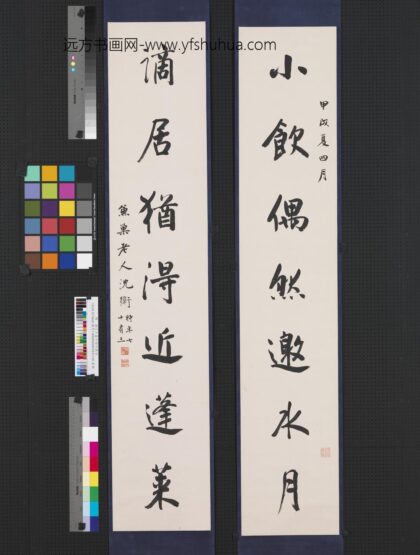 远方书画网-www.yfshuhua.com
甲戌夏四月
小飲偶然邀水月
謫居猶得近蓬萊
兼巢老人沈衛
時年七
十有三